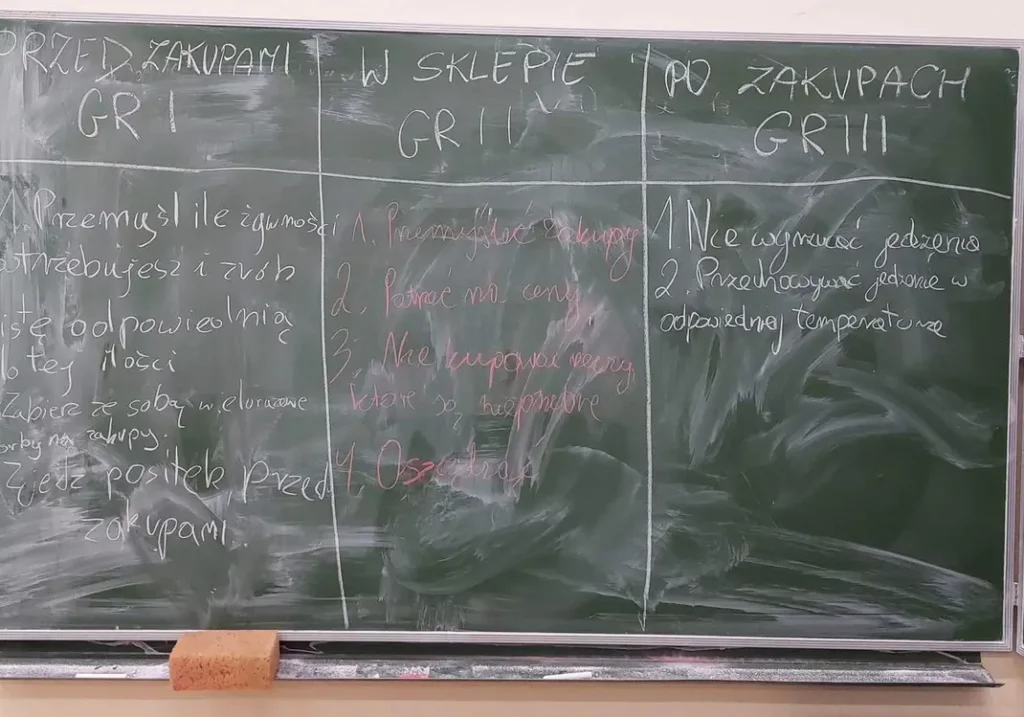 PRZED ZAKUPAMI
GR I
1. Przemyśl ile żywności
potrzebujesz i zrób
listę odpowiednią
do tej ilości
Zabierz ze sobą wielorazowe
torby na zakupy.
Zjedz posiłek przed
zakupami.
W SKLEPIE
GR II
1. Przemyśleć zakupy
2. Patrzeć na ceny
3. Nie kupować rzeczy,
które są niepotrzebne
4. Oszczędzać
PO ZAKUPACH
GR III
1. Nie wyrzucać jedzenia
2. Przechowywać jedzenie w
odpowiedniej temperaturze